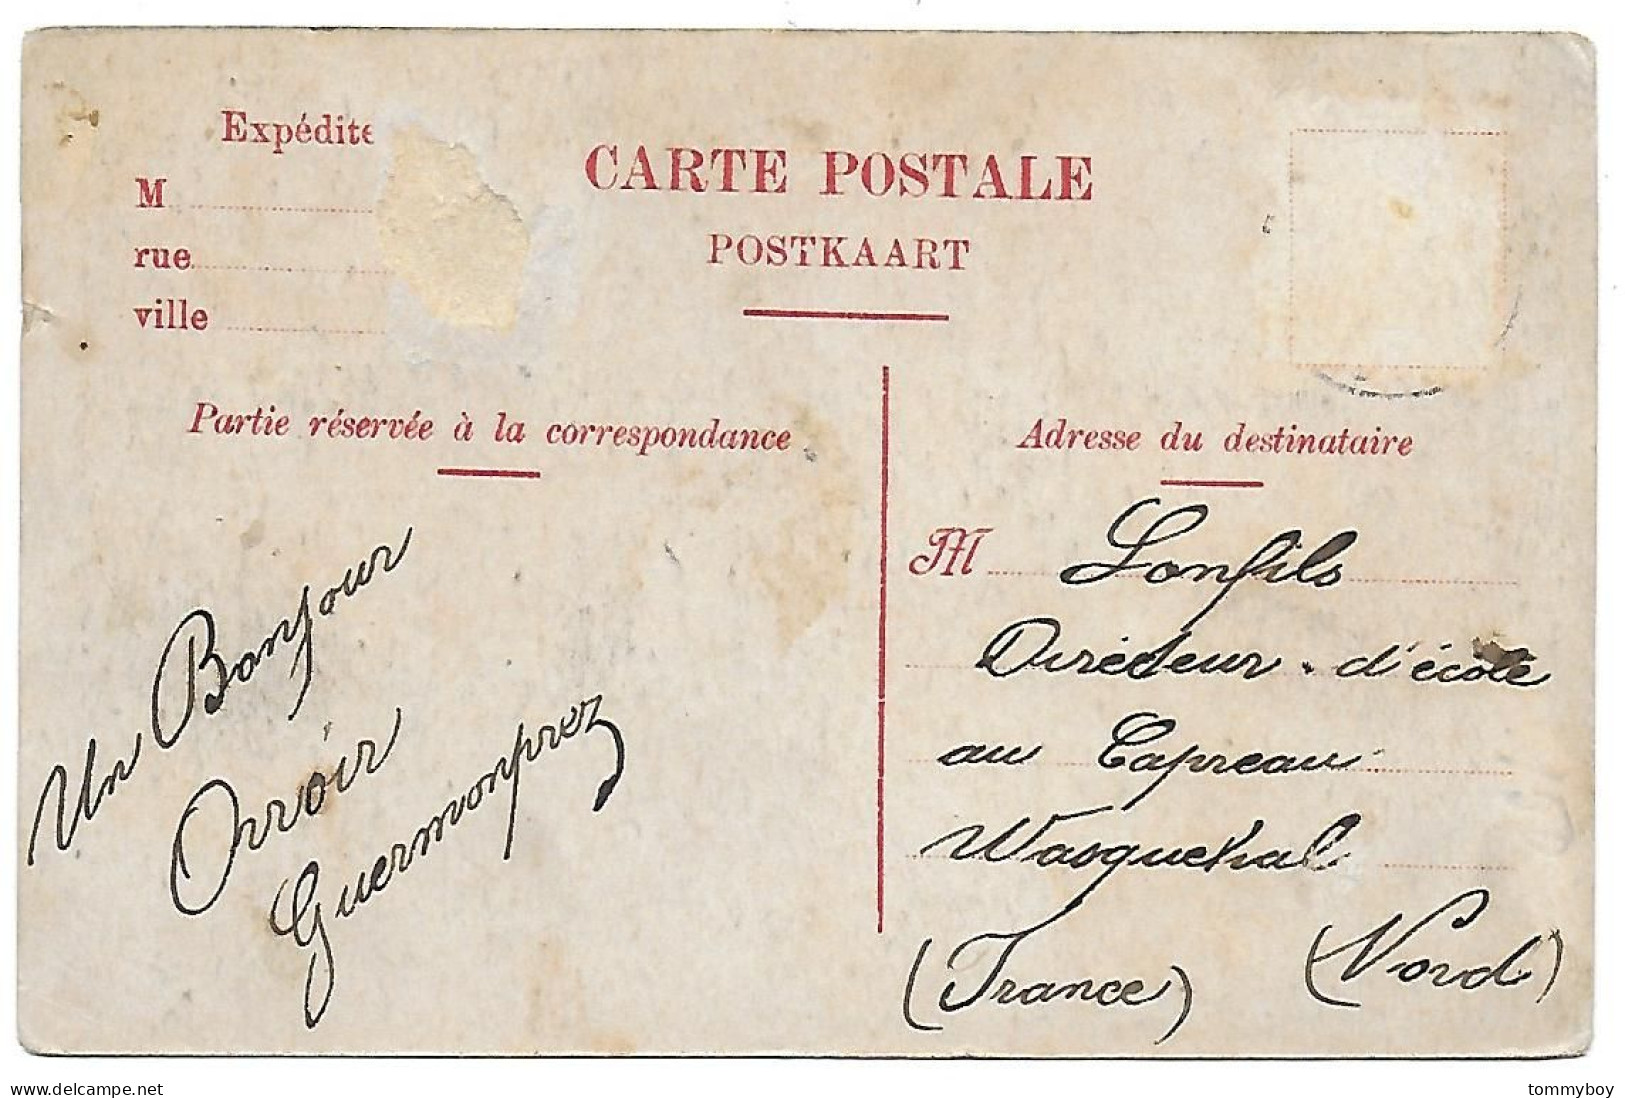 Expédite
M
rue
ville
CARTE POSTALE
POSTKAART
Partie réservée à la correspondance
Adresse du destinataire
Un Bonjour
Orroir
Guermonprez
M Lonfils
Directeur d'école
au Capreau
Wasquehal
(France) (Nord)
www.delcampe.net
tommyboy